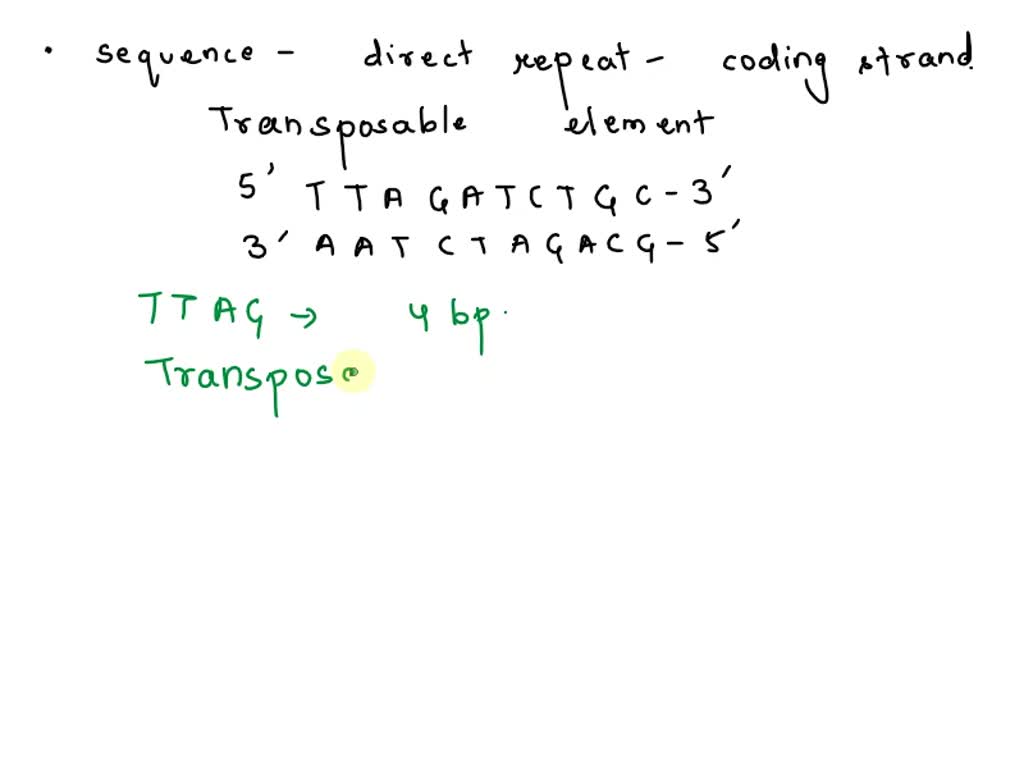 • sequence - direct repeat - coding strand.
Transposable element
5' T T A G A T C T G C - 3'
3' A A T C T A G A C G - 5'
T T A G → 4 bp.
Transpose